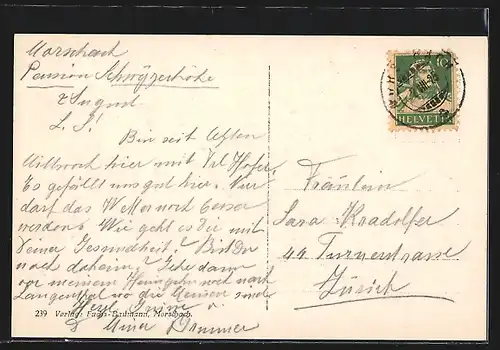 Morschach
Pension Schwyzerhöhe
7 August
L. S!
Bin seit letzten
Mittwoch hier mit Frl Hofer.
Es gefällt uns gut hier. Nur
darf das Wetter noch besser
werden. Wie geht es Dir mit
Deiner Gesundheit? Bist Du
noch daheim? Gehe dann
vor meinem Heimgehn noch nach
Langenthal wo die Meinen sind
Herzl. Grüsse v.
Anna Brunner
239 Verlag: Fassbind, Morschach.
HELVETIA
10
Fräulein
Sara Kradolfer
44 Turnerstrasse
Zürich